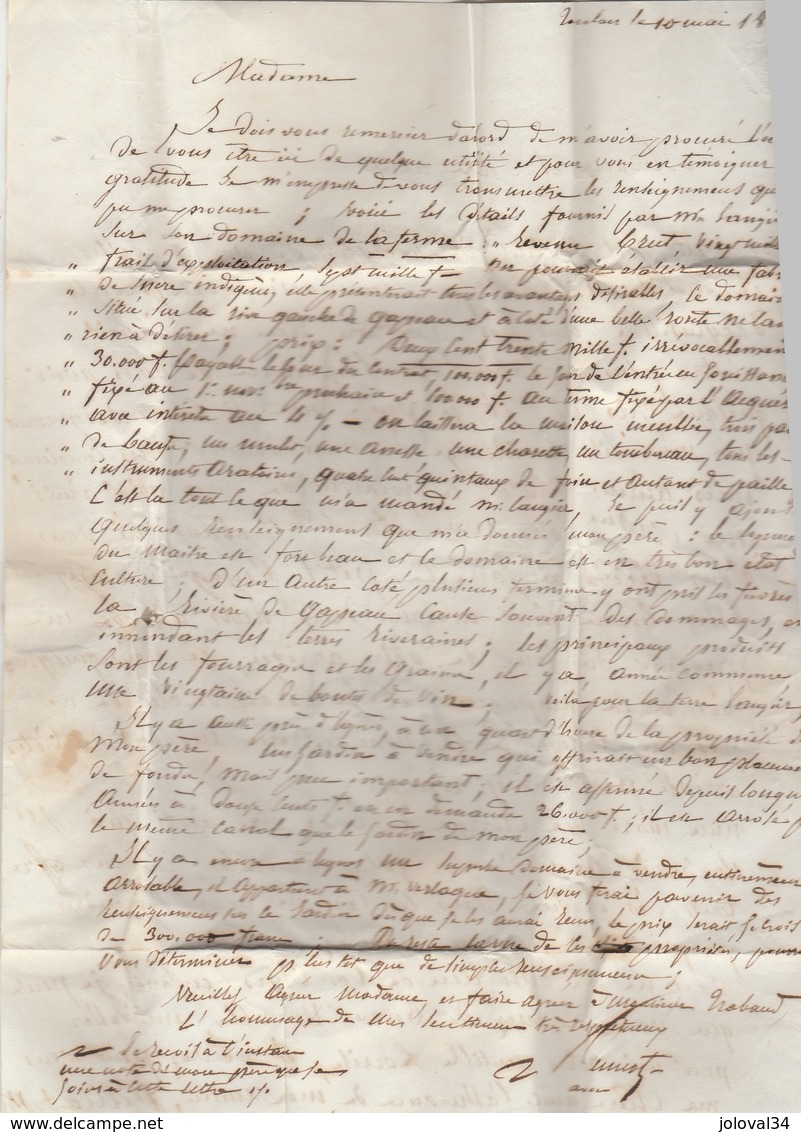 Toulon le 10 mai 18
Madame
Je dois vous remercier d'abord de m'avoir procuré l'oc
de vous être ici de quelque utilité et pour vous en témoigner
gratitude Je m'empresse de vous transmettre les renseignemens que
pu me procurer ; voici les détails fournis par Mr Laugier
sur son domaine de la ferme : " Revenu brut vingt mille
" frait d'exploitation Sept mille f. On pourrait établir une fabr
" de sucre indigène, elle présenterait tous les avantages désirables, Le domaine
" situé sur la rive gauche de gapeau et à coté d'une belle route ne lai
" rien à désirer ; prix : Deux Cent trente mille f. irrévocablement
" 30.000 f. payable le jour du contrat, 100.000 f. le jour de l'entrée en jouissance
" fixé au 1er novbre prochain et 100.000 f. au terme fixé par l'acquér
" avec intérêts au 4 % — on laissera la maison meublée, trois pa
" de boeufs, un mulet, une anesse une charette, un tombereau, tous les
" instruments aratoires, quatre cent quintaux de foin et autant de paille
C'est la tout ce que m'a mandé Mr laugier, Je puis y ajouter
quelques renseignement que m'a donnés mon père : le logement
du maitre est fort beau et le domaine est en très bon état
Culture ; D'un autre coté plusieurs fermiers y ont pris les fièvres
la Rivière de Gapeau cause souvent des dommages, en
innondant les terres riveraines ; les principaux produits
sont les fourrages et les grains, il y a, année commune
une vingtaine de bouts de vin ; voila pour la terre Laugier,
Il y a aussi près d'hyères, à un quart d'heure de la propriété de
mon père un jardin à vendre qui offrirait un bon placement
de fonds, mais peu important ; il est affermé depuis longues
Années à douze cents f. on en demande 26.000 f. ; il est arrosé p
le même canal que le jardin de mon père ;
Il y a encore a hyères un superbe domaine à vendre, entièrement
arrosable, il appartient à Mr verlaque, je vous ferai parvenir des
renseignemens sur ce jardin dès que je les aurai reçu, le prix serait je crois
de 300.000 francs. Du reste la vue de les propriétés, pourra
vous déterminer plus tot que de simples renseignemens ;
Veuillez agréer Madame, et faire agréer à Monsieur Trabaud,
L'hommage de mes sentimens très respectueux
Je reçois à l'instant
une note de mon père que je
joins à cette lettre